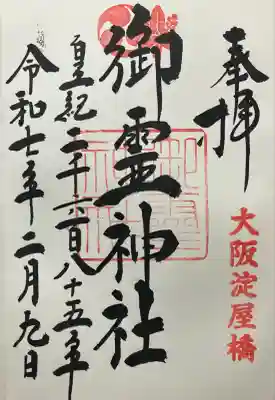 奉拝
大阪淀屋橋
御霊神社
皇紀二千六百八十五年
令和七年二月九日